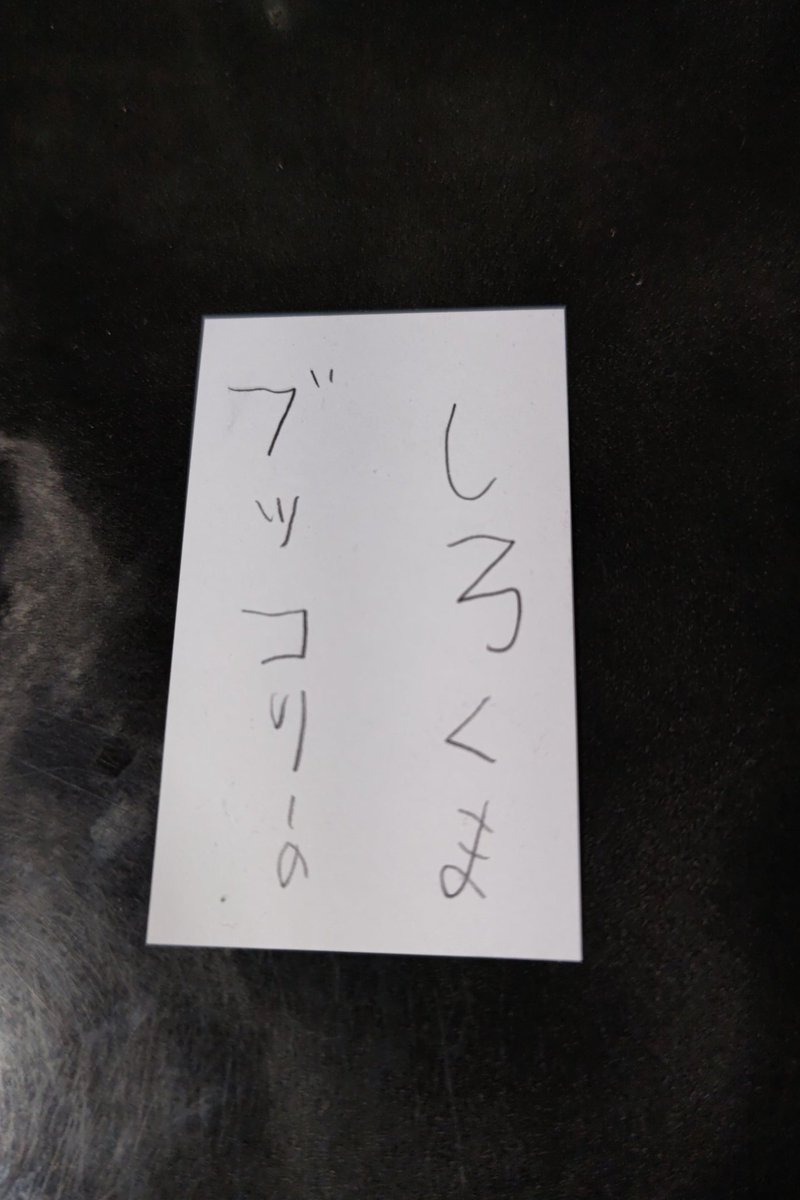 しろくみ
ブッコリーの